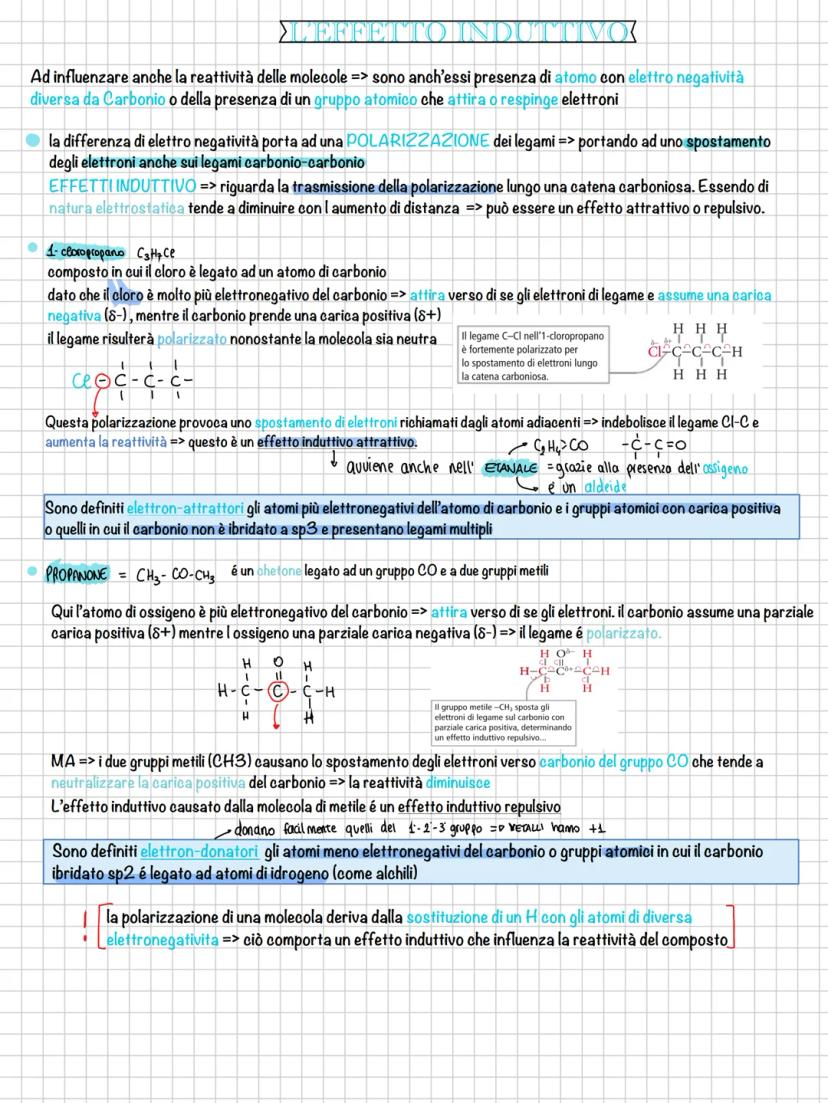 L'EFFETTO INDUTTIVO
Ad influenzare anche la reattività delle molecole => sono anch'essi presenza di atomo con elettro negatività
diversa da Carbonio o della presenza di un gruppo atomico che attira o respinge elettroni
la differenza di elettro negatività porta ad una POLARIZZAZIONE dei legami => portando ad uno spostamento
degli elettroni anche sui legami carbonio-carbonio
EFFETTI INDUTTIVO => riguarda la trasmissione della polarizzazione lungo una catena carboniosa. Essendo di
natura elettrostatica tende a diminuire con l aumento di distanza => può essere un effetto attrattivo o repulsivo.
1- cloropropano C₃H₇Cl
composto in cui il cloro è legato ad un atomo di carbonio
dato che il cloro è molto più elettronegativo del carbonio => attira verso di se gli elettroni di legame e assume una carica
negativa (δ-), mentre il carbonio prende una carica positiva (δ+)
il legame risulterà polarizzato nonostante la molecola sia neutra
Il legame C–Cl nell'1-cloropropano
è fortemente polarizzato per
lo spostamento di elettroni lungo
la catena carboniosa.
H H H
δ- δ+
Cl-C-C-C-H
H H H
Cl - C - C - C -
Questa polarizzazione provoca uno spostamento di elettroni richiamati dagli atomi adiacenti => indebolisce il legame Cl-C e
aumenta la reattività => questo è un effetto induttivo attrattivo.
C₂H₄>CO -C-C=O
avviene anche nell' ETANALE = grazie alla presenza dell'ossigeno
è un aldeide
Sono definiti elettron-attrattori gli atomi più elettronegativi dell'atomo di carbonio e i gruppi atomici con carica positiva
o quelli in cui il carbonio non è ibridato a sp3 e presentano legami multipli
PROPANONE = CH₃- CO-CH₃ é un chetone legato ad un gruppo CO e a due gruppi metili
Qui l'atomo di ossigeno è più elettronegativo del carbonio => attira verso di se gli elettroni. il carbonio assume una parziale
carica positiva (δ+) mentre l ossigeno una parziale carica negativa (δ-) => il legame é polarizzato.
H O H
H-C-C-C-H
H H
H Oδ- H
H-C-Cδ+-C-H
H H
Il gruppo metile –CH₃ sposta gli
elettroni di legame sul carbonio con
parziale carica positiva, determinando
un effetto induttivo repulsivo...
MA => i due gruppi metili (CH3) causano lo spostamento degli elettroni verso carbonio del gruppo CO che tende a
neutralizzare la carica positiva del carbonio => la reattività diminuisce
L'effetto induttivo causato dalla molecola di metile é un effetto induttivo repulsivo
donano facilmente quelli del 1°-2°-3° gruppo => METALLI hanno +1
Sono definiti elettron-donatori gli atomi meno elettronegativi del carbonio o gruppi atomici in cui il carbonio
ibridato sp2 é legato ad atomi di idrogeno (come alchili)
! la polarizzazione di una molecola deriva dalla sostituzione di un H con gli atomi di diversa
elettronegativita => ciò comporta un effetto induttivo che influenza la reattività del composto